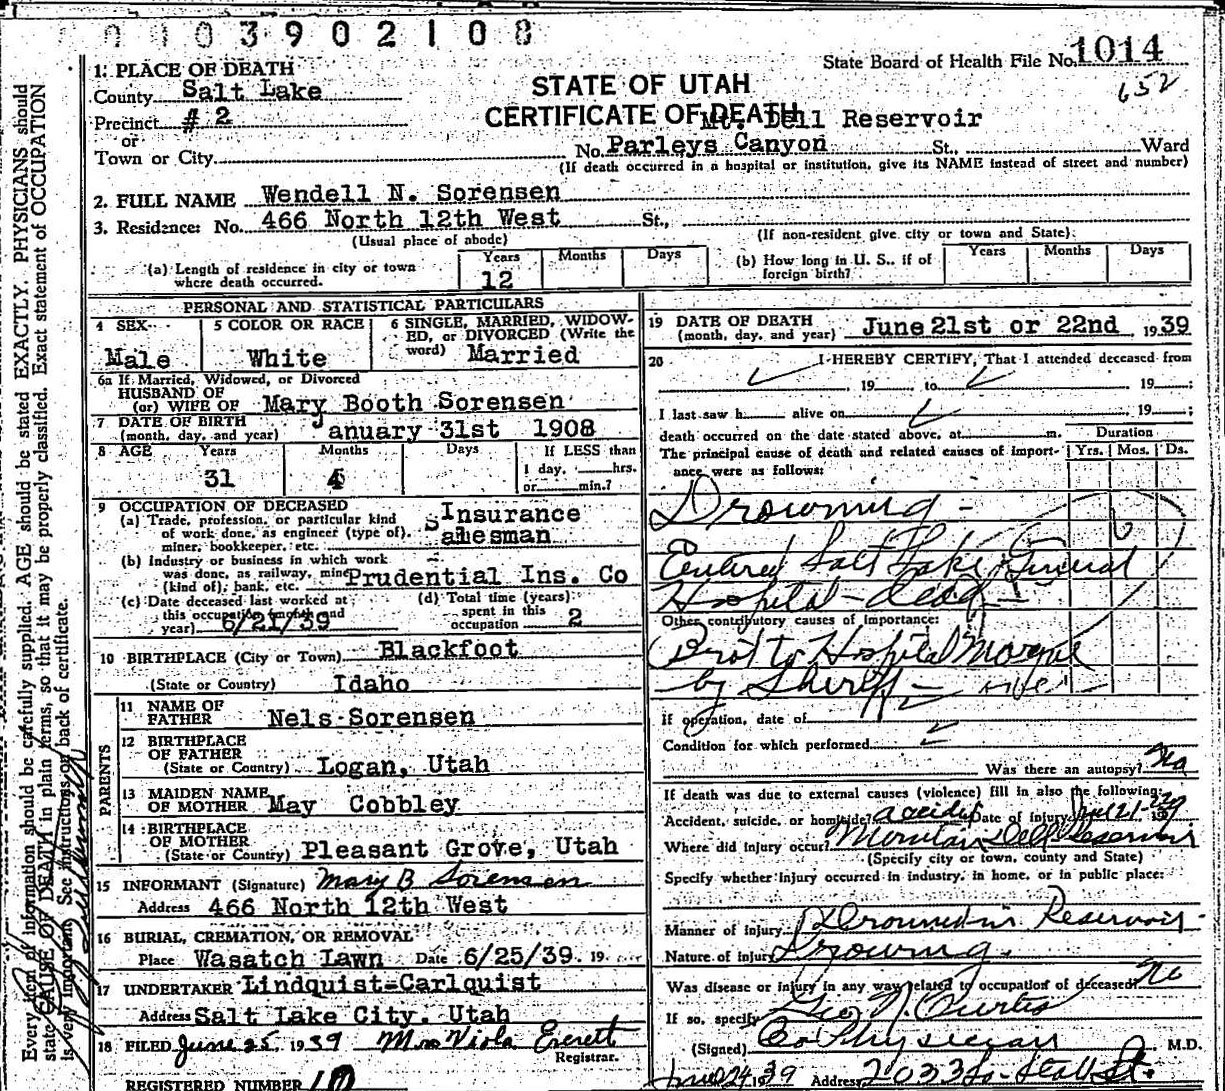 0103902108
State Board of Health File No. 1014
652
1. PLACE OF DEATH
County Salt Lake
Precinct # 2
or
Town or City
STATE OF UTAH
CERTIFICATE OF DEATH
Mt. Dell Reservoir
No. Parleys Canyon St., Ward
(If death occurred in a hospital or institution, give its NAME instead of street and number)
2. FULL NAME Wendell N. Sorensen
3. Residence: No. 466 North 12th West St.,
(Usual place of abode) (If non-resident give city or town and State)
(a) Length of residence in city or town where death occurred. Years 12 Months Days
(b) How long in U. S., if of foreign birth? Years Months Days
PERSONAL AND STATISTICAL PARTICULARS
4 SEX Male
5 COLOR OR RACE White
6 SINGLE, MARRIED, WIDOWED, or DIVORCED (Write the word) Married
6a If Married, Widowed, or Divorced
HUSBAND OF
(or) WIFE OF Mary Booth Sorensen
7 DATE OF BIRTH
(month, day, and year) January 31st 1908
8 AGE Years 31 Months 4 Days
If LESS than
1 day, hrs.
or min.?
9 OCCUPATION OF DECEASED
(a) Trade, profession, or particular kind
of work done, as engineer (type of),
miner, bookkeeper, etc. Insurance Salesman
(b) Industry or business in which work
was done, as railway, mine
(kind of), bank, etc. Prudential Ins. Co
(c) Date deceased last worked at
this occupation (month and
year) 6/21/39
(d) Total time (years)
spent in this
occupation 2
10 BIRTHPLACE (City or Town) Blackfoot
(State or Country) Idaho
PARENTS
11 NAME OF
FATHER Nels Sorensen
12 BIRTHPLACE
OF FATHER
(State or Country) Logan, Utah
13 MAIDEN NAME
OF MOTHER May Cobbley
14 BIRTHPLACE
OF MOTHER
(State or Country) Pleasant Grove, Utah
15 INFORMANT (Signature) Mary B Sorensen
Address 466 North 12th West
16 BURIAL, CREMATION, OR REMOVAL
Place Wasatch Lawn Date 6/25/39 19
17 UNDERTAKER Lindquist-Carlquist
Address Salt Lake City, Utah
18 FILED June 25, 1939 Mrs Viola Everett
Registrar.
REGISTERED NUMBER
19 DATE OF DEATH
(month, day, and year) June 21st or 22nd 1939
20 I HEREBY CERTIFY, That I attended deceased from
, 19 to 19 ;
I last saw h alive on 19 ;
death occurred on the date stated above, at m.
Duration
The principal cause of death and related causes of importance were as follows: Yrs. Mos. Ds.
Drowning -
Entered Salt Lake General
Hospital - dead -
Other contributory causes of importance:
Brot to Hospital Morgue
by Sheriff -
If operation, date of
Condition for which performed
Was there an autopsy? No
If death was due to external causes (violence) fill in also the following:
Accident, suicide, or homicide? accident Date of injury
Where did injury occur? Mountain Dell Reservoir
(Specify city or town, county and State)
Specify whether injury occurred in industry, in home, or in public place:
Manner of injury Drowned in Reservoir
Nature of injury Drowning.
Was disease or injury in any way related to occupation of deceased? No
If so, specify
Geo N. Curtis
(Signed) Co Physician M.D.
24 1939 Address 2033 So. State St.
Every item of information should be carefully supplied. AGE should be stated EXACTLY. PHYSICIANS should
state CAUSE OF DEATH in plain terms, so that it may be properly classified. Exact statement of OCCUPATION
is very important. See instructions on back of certificate.